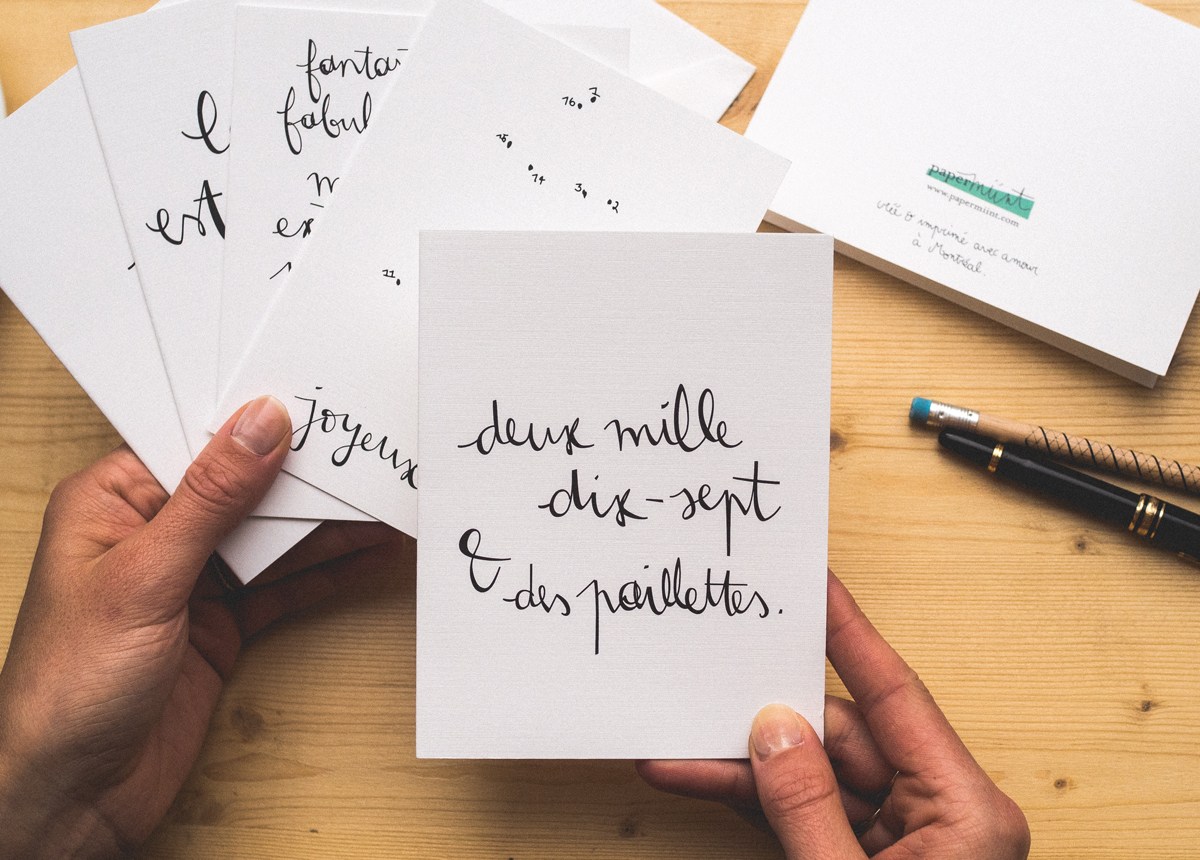 fantai
fabul
m
ex
l
est
16
7
15
14
3
2
11
joyeux
deux mille
dix-sept
& des paillettes.
papermiint
www.papermiint.com
créé & imprimé avec amour
à Montréal.